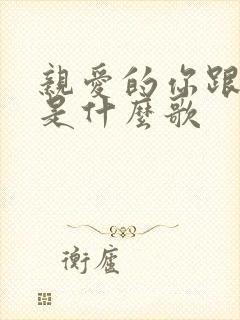 親愛的你跟
是什麼歌
衡廬